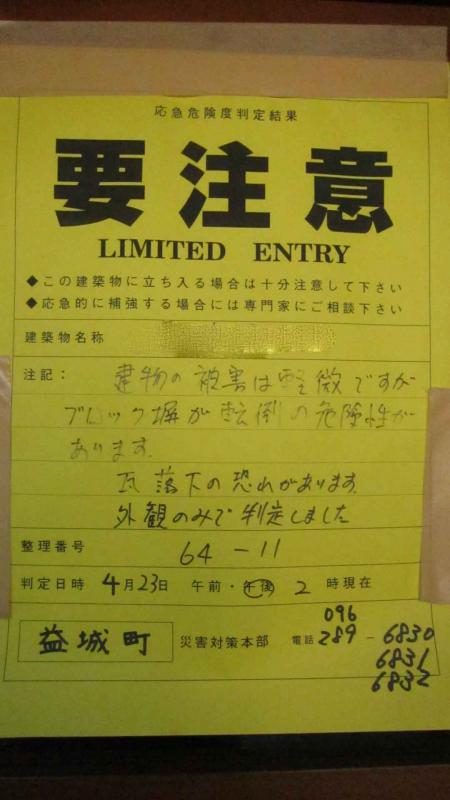 応急危険度判定結果
要注意
LIMITED ENTRY
◆この建築物に立ち入る場合は十分注意して下さい
◆応急的に補強する場合には専門家にご相談下さい
建築物名称
注記： 建物の被害は軽微ですが
ブロック塀が転倒の危険性が
あります。
瓦落下の恐れがあります。
外観のみで判定しました
整理番号 64-11
判定日時 4月23日 午前・午後 2 時現在
益城町 災害対策本部 電話 096 289-6830
6831
6832